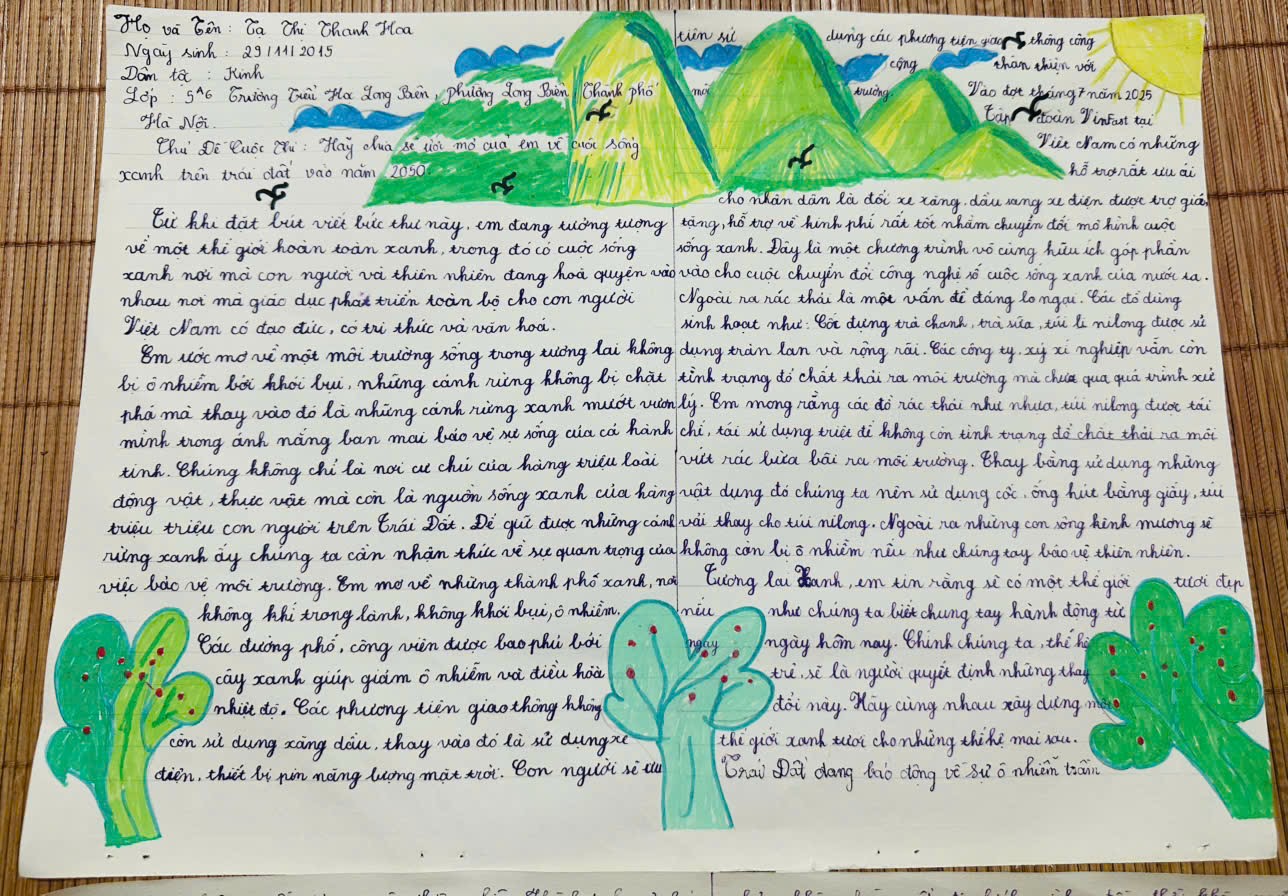 Họ và Tên: Tạ Thị Thanh Hoa
Ngày sinh: 29/11/2015
Dân tộc: Kinh
Lớp: 5A6 Trường Tiểu Học Long Biên, phường Long Biên, Thành phố
Hà Nội.
Chủ Đề Cuộc Thi: Hãy chia sẻ ước mơ của em về cuộc sống
xanh trên trái đất vào năm 2050.
Từ khi đặt bút viết bức thư này, em đang tưởng tượng
về một thế giới hoàn toàn xanh, trong đó có cuộc sống
xanh nơi mà con người và thiên nhiên đang hoà quyện vào
nhau nơi mà giáo dục phát triển toàn bộ cho con người
Việt Nam có đạo đức, có tri thức và văn hoá.
Em ước mơ về một môi trường sống trong tương lai không
bị ô nhiễm bởi khói bụi, những cánh rừng không bị chặt
phá mà thay vào đó là những cánh rừng xanh mướt vươn
mình trong ánh nắng ban mai bảo vệ sự sống của cả hành
tinh. Chúng không chỉ là nơi cư chú của hàng triệu loài
động vật, thực vật mà còn là nguồn sống xanh của hàng
triệu triệu con người trên Trái Đất. Để giữ được những cánh
rừng xanh ấy chúng ta cần nhận thức về sự quan trọng của
việc bảo vệ môi trường. Em mơ về những thành phố xanh, nơi
không khí trong lành, không khói bụi, ô nhiễm.
Các đường phố, công viên được bao phủ bởi
cây xanh giúp giảm ô nhiễm và điều hoà
nhiệt độ. Các phương tiện giao thông không
còn sử dụng xăng dầu, thay vào đó là sử dụng xe
điện, thiết bị pin năng lượng mặt trời. Con người sẽ ưu
tiên sử dụng các phương tiện giao thông công
cộng thân thiện với
môi trường. Vào đợt tháng 7 năm 2025
Tập đoàn Vinfast tại
Việt Nam có những
hỗ trợ rất ưu ái
cho nhân dân là đổi xe xăng, dầu sang xe điện được trợ giá,
tặng, hỗ trợ về kinh phí rất tốt nhằm chuyển đổi mô hình cuộc
sống xanh. Đây là một chương trình vô cùng hữu ích góp phần
vào cho cuộc chuyển đổi công nghệ số cuộc sống xanh của nước ta.
Ngoài ra rác thải là một vấn đề đáng lo ngại. Các đồ dùng
sinh hoạt như: Cốc đựng trà chanh, trà sữa, túi li nilong được sử
dụng tràn lan và rộng rãi. Các công ty, xý xí nghiệp vẫn còn
tình trạng đổ chất thải ra môi trường mà chưa qua quá trình xử
lý. Em mong rằng các đồ rác thải như nhựa, túi nilong được tái
chế, tái sử dụng triệt để không còn tình trạng đổ chất thải ra môi
vứt rác bừa bãi ra môi trường. Thay bằng sử dụng những
vật dụng đó chúng ta nên sử dụng cốc, ống hút bằng giấy, túi
vải thay cho túi nilong. Ngoài ra những con sông kênh mương sẽ
không còn bị ô nhiễm nếu như chúng tay bảo vệ thiên nhiên.
Tương lai Xanh, em tin rằng sẽ có một thế giới tươi đẹp
nếu như chúng ta biết chung tay hành động từ
ngay ngày hôm nay. Chính chúng ta, thế hệ
trẻ, sẽ là người quyết định những thay
đổi này. Hãy cùng nhau xây dựng một
thế giới xanh tươi cho những thế hệ mai sau.
Trái Đất đang báo động về sự ô nhiễm trầm